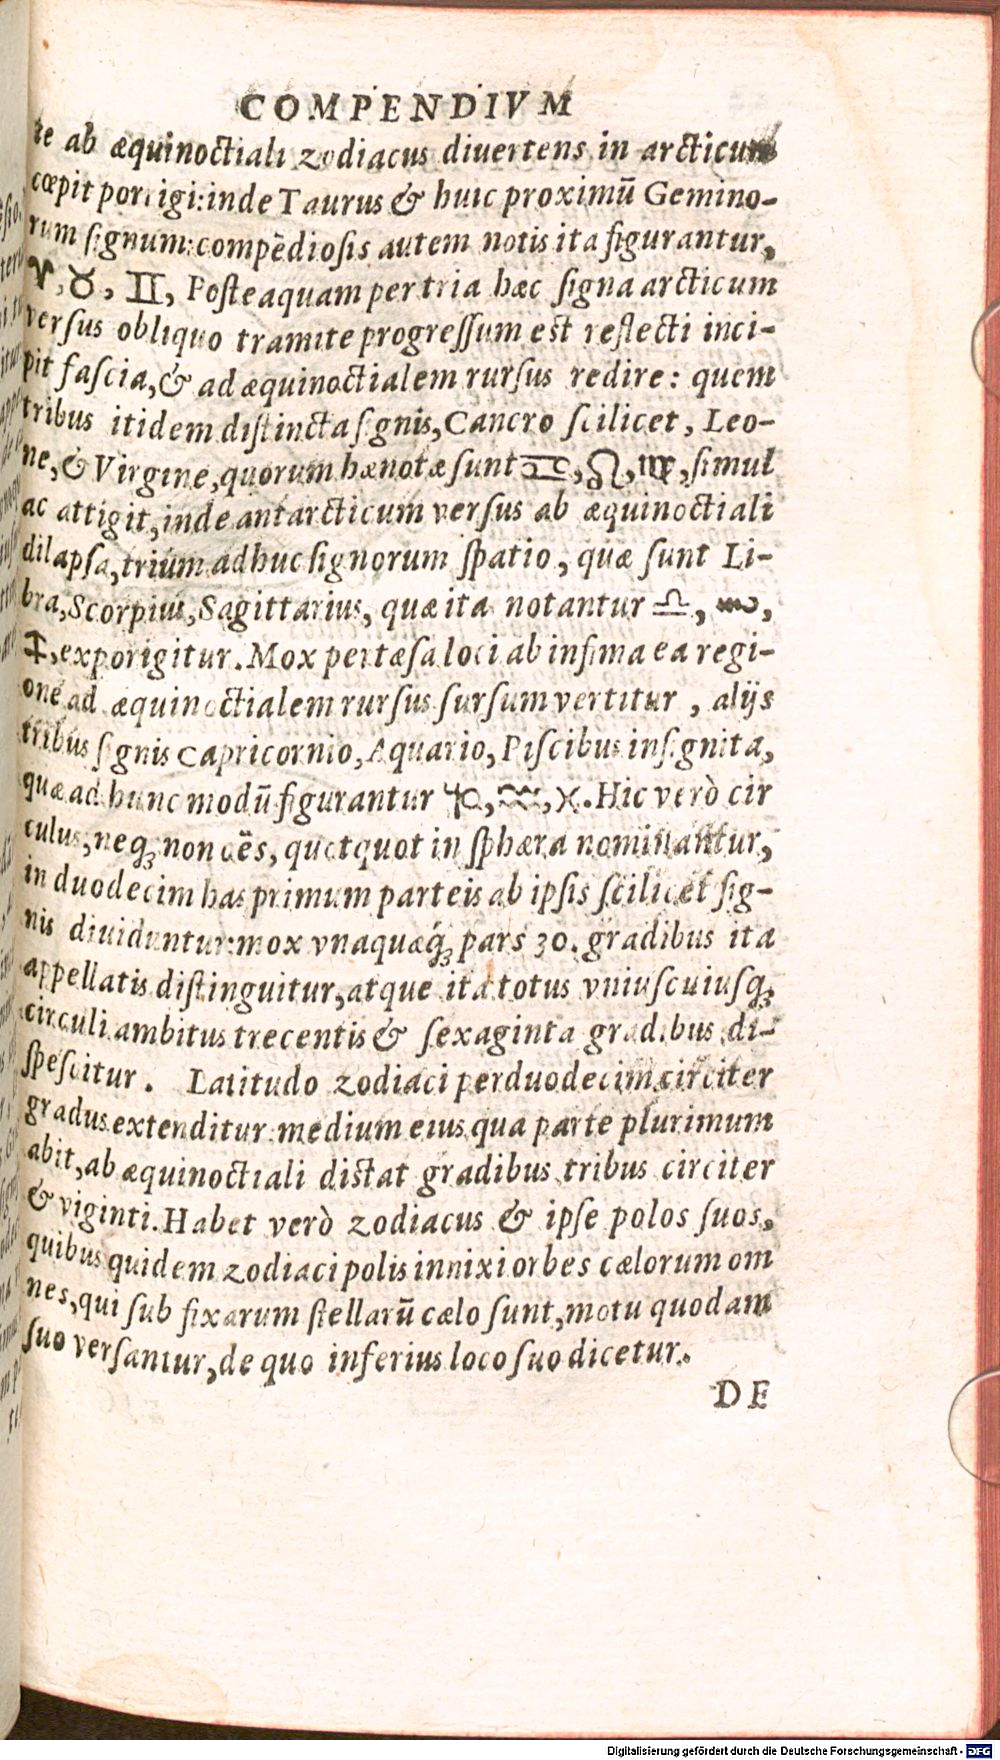 COMPENDIVM
te ab æquinoctiali zodiacus diuertens in arcticum
cœpit porrigi: inde Taurus & huic proximū Gemino-
rum ſignum: compēdioſis autem notis ita figurantur,
♈, ♉, ♊, Poſteaquam per tria hæc ſigna arcticum
verſus obliquo tramite progreſſum est reflecti inci-
pit faſcia, & ad æquinoctialem rurſus redire: quem
tribus itidem diſtincta ſignis, Cancro ſcilicet, Leo-
ne, & Virgine, quorum hæ notæ ſunt ♋, ♌, ♍, ſimul
ac attigit, inde antarcticum verſus ab æquinoctiali
dilapſa, trium adhuc ſignorum ſpatio, quæ ſunt Li-
bra, Scorpius, Sagittarius, quæ ita notantur ♎, ♏,
♐, exporigitur. Mox pertæſa loci ab infima ea regi-
one ad æquinoctialem rurſus ſurſum vertitur, alijs
tribus ſignis Capricornio, Aquario, Piſcibus inſignita,
quæ ad hunc modū figurantur ♑, ♒, ♓. Hic verò cir
culus, neq; non oēs, quotquot in ſphæra nominantur,
in duodecim has primum parteis ab ipſis ſcilicet ſig-
nis diuiduntur: mox vnaquæq; pars 30. gradibus ita
appellatis diſtinguitur, atque ita totus vniuſcuiuſq;
circuli ambitus trecentis & ſexaginta gradibus di-
ſpeſcitur. Latitudo zodiaci per duodecim circiter
gradus extenditur: medium eius qua parte plurimum
abit, ab æquinoctiali diſtat gradibus tribus circiter
& viginti. Habet verò zodiacus & ipſe polos ſuos,
quibus quidem zodiaci polis innixi orbes cælorum om
nes, qui ſub fixarum ſtellarū cælo ſunt, motu quodam
ſuo verſantur, de quo inferius loco ſuo dicetur.
DE
Digitalisierung gefördert durch die Deutsche Forschungsgemeinschaft - DFG